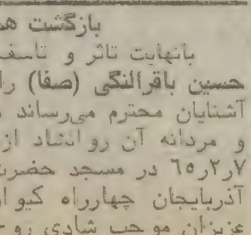 بازگشت هم
بانهایت تاثر و تاسف
حسین باقرالنگی (صفا) را
آشنایان محترم می‌رساند
و مردانه آن روانشاد از
۶۵ر۲ر۷ در مسجد حضرت
آذربایجان چهارراه کیوا
عزیزان موجب شادی رو